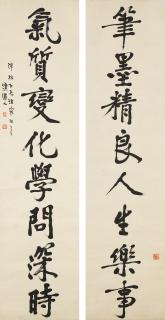 筆墨精良人生樂事
氣質變化學問深時